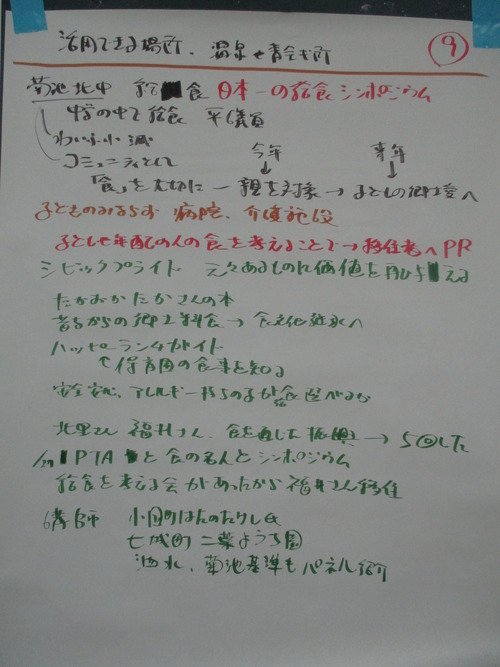 活用できる場所、温泉や青年会議所
9
菊池北中 給食 日本一の給食シンポジウム
中の中で給食 平儀員
コミュニティとして 今年 来年
「食」を大切に 親を対象 → 子どもの郷土愛へ
子どものみならず 病院、介護施設
子どもや年配の人の食を考えることで→移住者へPR
シビックプライド 元々あるものに価値を再び与える
たかおかたかさんの本
昔ながらの郷土料食→食文化継承へ
ハッピーランチガイド
↑保育園の食事を知る
安全安心、アレルギー持ちの子が給食選べるか
北里さん 福井さん、食を通した振興→5回した
PTA と食の名人とシンポジウム
給食を考える会があったから福井さん移住
講師 小国町はたのたけし氏
七城町 二葉ようち園
泗水、菊池基準もパネル紹介